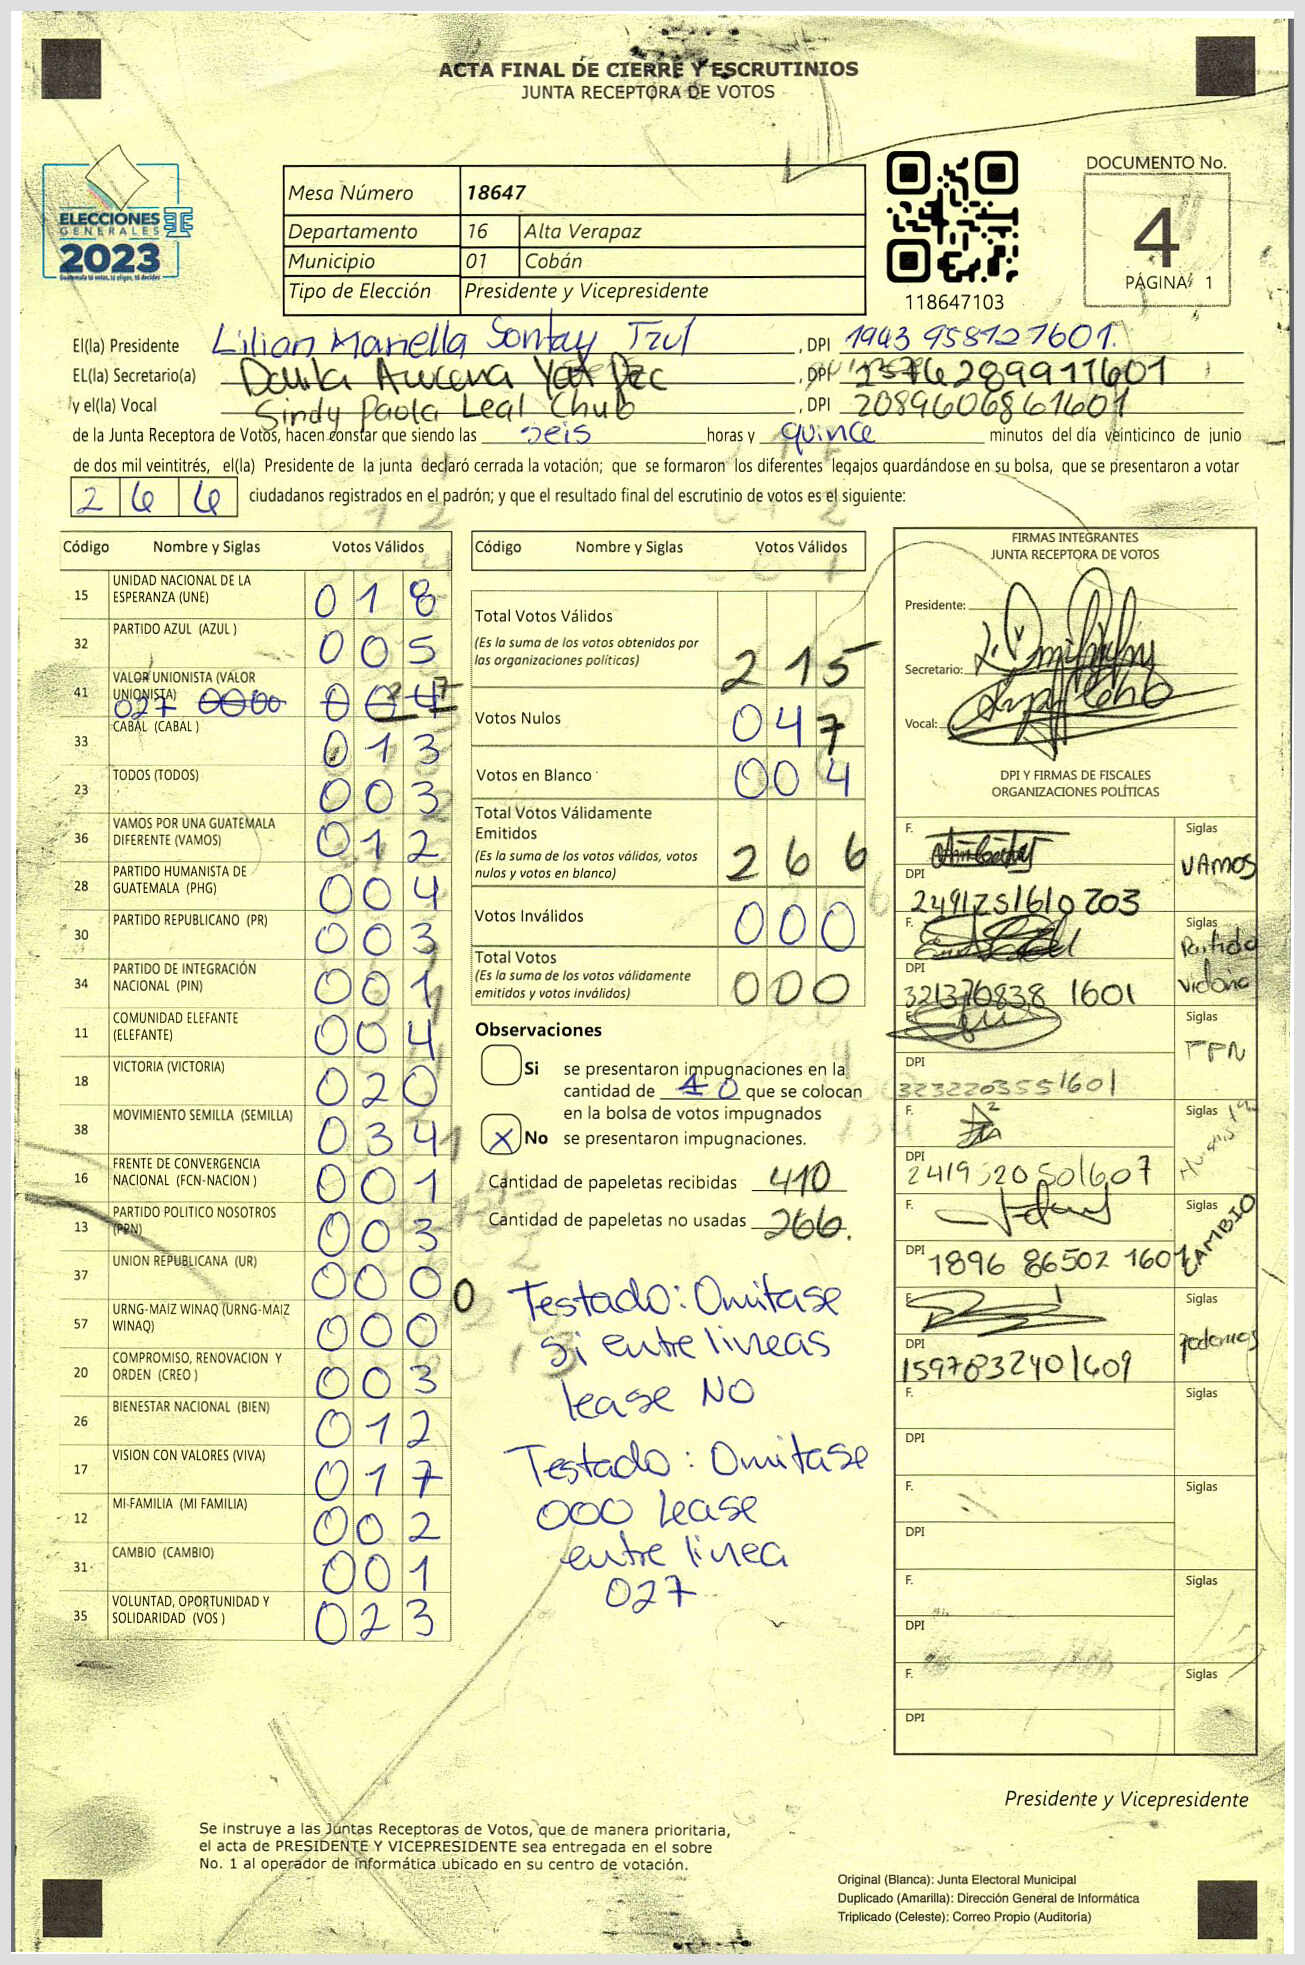 ACTA FINAL DE CIERRE Y ESCRUTINIOS
JUNTA RECEPTORA DE VOTOS
ELECCIONES
GENERALES
2023
Mesa Número 18647
Departamento 16 Alta Verapaz
Municipio 01 Cobán
Tipo de Elección Presidente y Vicepresidente
118647103
DOCUMENTO No.
4
PÁGINA 1
El(la) Presidente Lilian Mariella Sontay Tzul, DPI 1943 958121601.
EL(la) Secretario(a) Azucena, DPI 2576289911601
y el(la) Vocal Sindy Paola Leal Chub, DPI 2089606861601
de la Junta Receptora de Votos, hacen constar que siendo las seis horas y quince minutos del día veinticinco de junio
de dos mil veintitrés, el(la) Presidente de la junta declaró cerrada la votación; que se formaron los diferentes legajos guardándose en su bolsa, que se presentaron a votar
266 ciudadanos registrados en el padrón; y que el resultado final del escrutinio de votos es el siguiente:
Código Nombre y Siglas Votos Válidos
15 UNIDAD NACIONAL DE LA ESPERANZA (UNE) 018
32 PARTIDO AZUL (AZUL ) 005
41 VALOR UNIONISTA (VALOR UNIONISTA) 027
33 CABAL (CABAL ) 013
23 TODOS (TODOS) 003
36 VAMOS POR UNA GUATEMALA DIFERENTE (VAMOS) 012
28 PARTIDO HUMANISTA DE GUATEMALA (PHG) 004
30 PARTIDO REPUBLICANO (PR) 003
34 PARTIDO DE INTEGRACIÓN NACIONAL (PIN) 001
11 COMUNIDAD ELEFANTE (ELEFANTE) 004
18 VICTORIA (VICTORIA) 020
38 MOVIMIENTO SEMILLA (SEMILLA) 034
16 FRENTE DE CONVERGENCIA NACIONAL (FCN-NACION ) 001
13 PARTIDO POLITICO NOSOTROS (PPN) 003
37 UNION REPUBLICANA (UR) 000
57 URNG-MAIZ WINAQ (URNG-MAIZ WINAQ) 000
20 COMPROMISO, RENOVACION Y ORDEN (CREO ) 003
26 BIENESTAR NACIONAL (BIEN) 012
17 VISION CON VALORES (VIVA) 017
12 MI FAMILIA (MI FAMILIA) 002
31 CAMBIO (CAMBIO) 001
35 VOLUNTAD, OPORTUNIDAD Y SOLIDARIDAD (VOS ) 023
Código Nombre y Siglas Votos Válidos
Total Votos Válidos 215
(Es la suma de los votos obtenidos por
las organizaciones políticas)
Votos Nulos 047
Votos en Blanco 004
Total Votos Válidamente
Emitidos 266
(Es la suma de los votos válidos, votos
nulos y votos en blanco)
Votos Inválidos 000
Total Votos 000
(Es la suma de los votos válidamente
emitidos y votos inválidos)
Observaciones
Si se presentaron impugnaciones en la
cantidad de 0 que se colocan
en la bolsa de votos impugnados
X No se presentaron impugnaciones.
Cantidad de papeletas recibidas 410
Cantidad de papeletas no usadas 266.
0
Testado: Omitase
si entre lineas
lease NO
Testado: Omitase
000 lease
entre linea
027
FIRMAS INTEGRANTES
JUNTA RECEPTORA DE VOTOS
Presidente:
Secretario:
Vocal:
DPI Y FIRMAS DE FISCALES
ORGANIZACIONES POLÍTICAS
F. Siglas VAMOS
DPI 2491251610703
F. Siglas Partido Victoria
DPI 321370838 1601
F. Siglas PPN
DPI 3232203551601
F. Siglas
DPI 2419520501607
F. Siglas CAMBIO
DPI 1896 86502 1601
F. Siglas Podemos
DPI 1597832401609
F. Siglas
DPI
F. Siglas
DPI
F. Siglas
DPI
F. Siglas
DPI
Presidente y Vicepresidente
Se instruye a las Juntas Receptoras de Votos, que de manera prioritaria,
el acta de PRESIDENTE Y VICEPRESIDENTE sea entregada en el sobre
No. 1 al operador de informática ubicado en su centro de votación.
Original (Blanca): Junta Electoral Municipal
Duplicado (Amarilla): Dirección General de Informática
Triplicado (Celeste): Correo Propio (Auditoria)